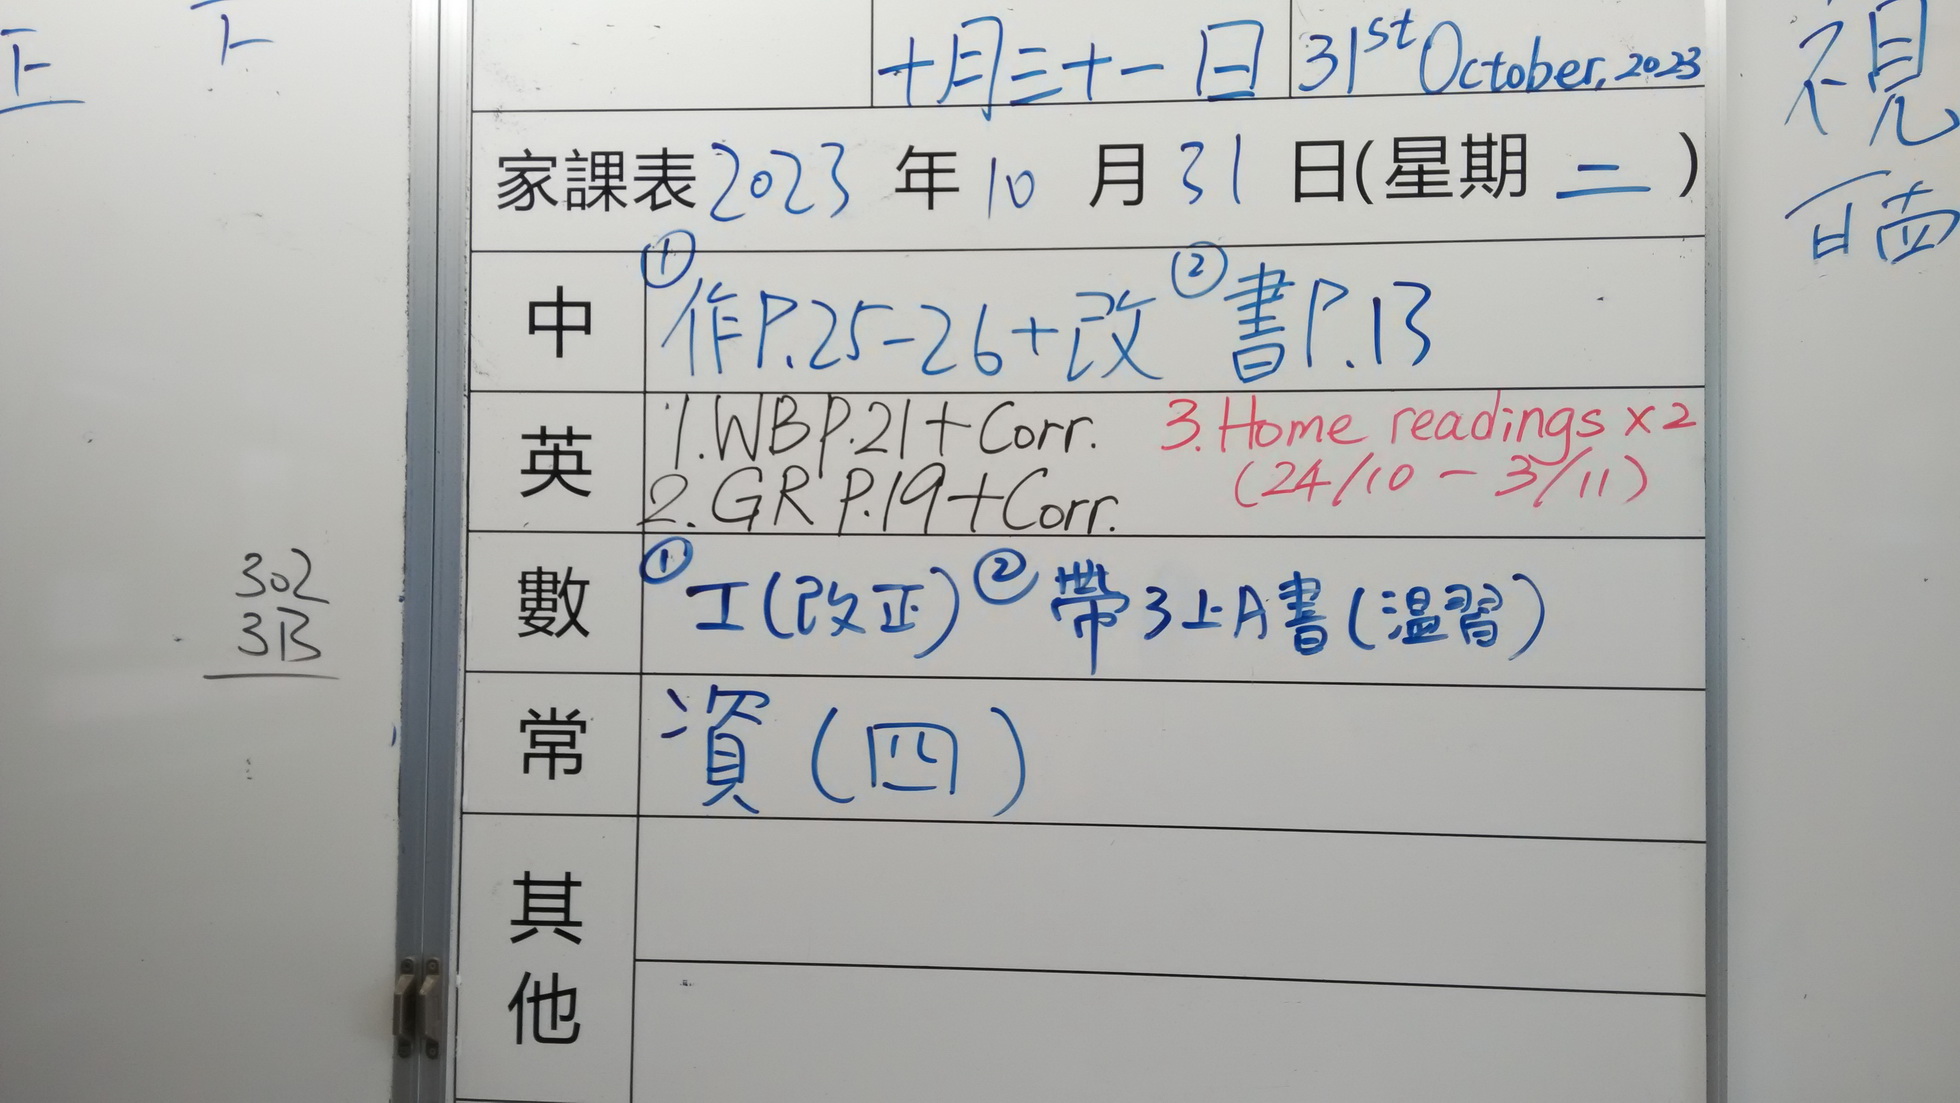 十月三十一日 31st October, 2023
家課表 2023 年 10 月 31 日(星期 二 )
中 ①作P.25-26+改 ②書P.13
英 1.WB P.21+Corr. 3.Home readings x2
2.GR P.19+Corr. (24/10 - 3/11)
數 ①工(改正) ②帶3上A書(溫習)
常 資(四)
其他
302
3B
視